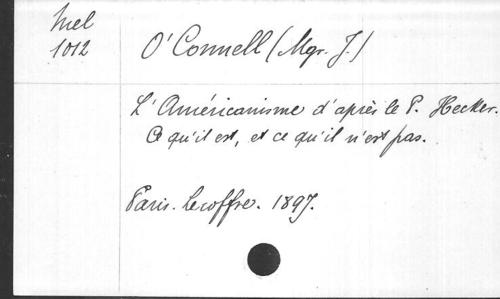 Mel
1012
O'Connell (Mgr. J.)
L'Américanisme d'après le P. Hecker.
Ce qu'il est, et ce qu'il n'est pas.
Paris. Lecoffre. 1897.